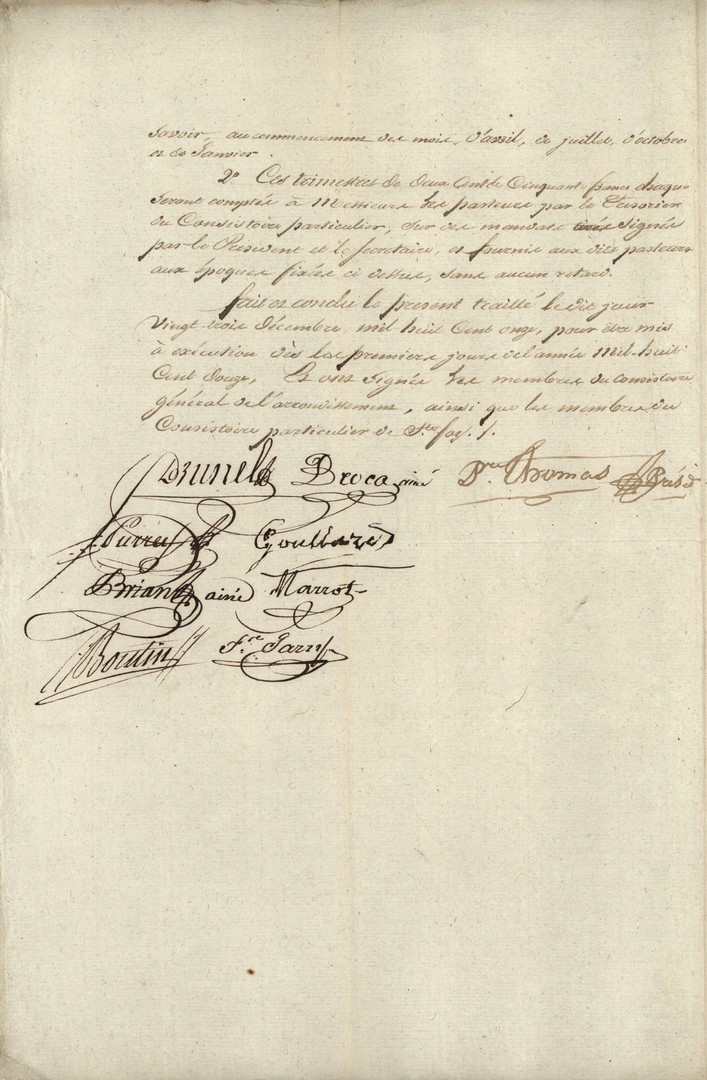 Savoir, au commencement des mois, d'avril, de juillet, d'octobre
et de Janvier.
2º Ces trimestres de deux Cent de Cinquante francs chaque
seront comptés à Messieurs les pasteurs par le Trésorier
du Consistoire particulier, sur des mandats tirés signés
par le Président et le Secretaire, et fournis aux dits pasteurs
aux époques fixées ci dessus, sans aucun retard.
fait et conclu le présent traitté le dit jour
Vingt-trois décembre mil huit Cent onze, pour être mis
à exécution dès les premiers jours de l'année Mil-huit
Cent douze, Et ont Signés les membres du consistoire
général de l'arrondissement, ainsi que les membres du
Consistoire particulier de Ste foy. /.
Brunel Broca ainé Dre Thomas Présdt
Goullard
Briand ainé Marrot
Boutin